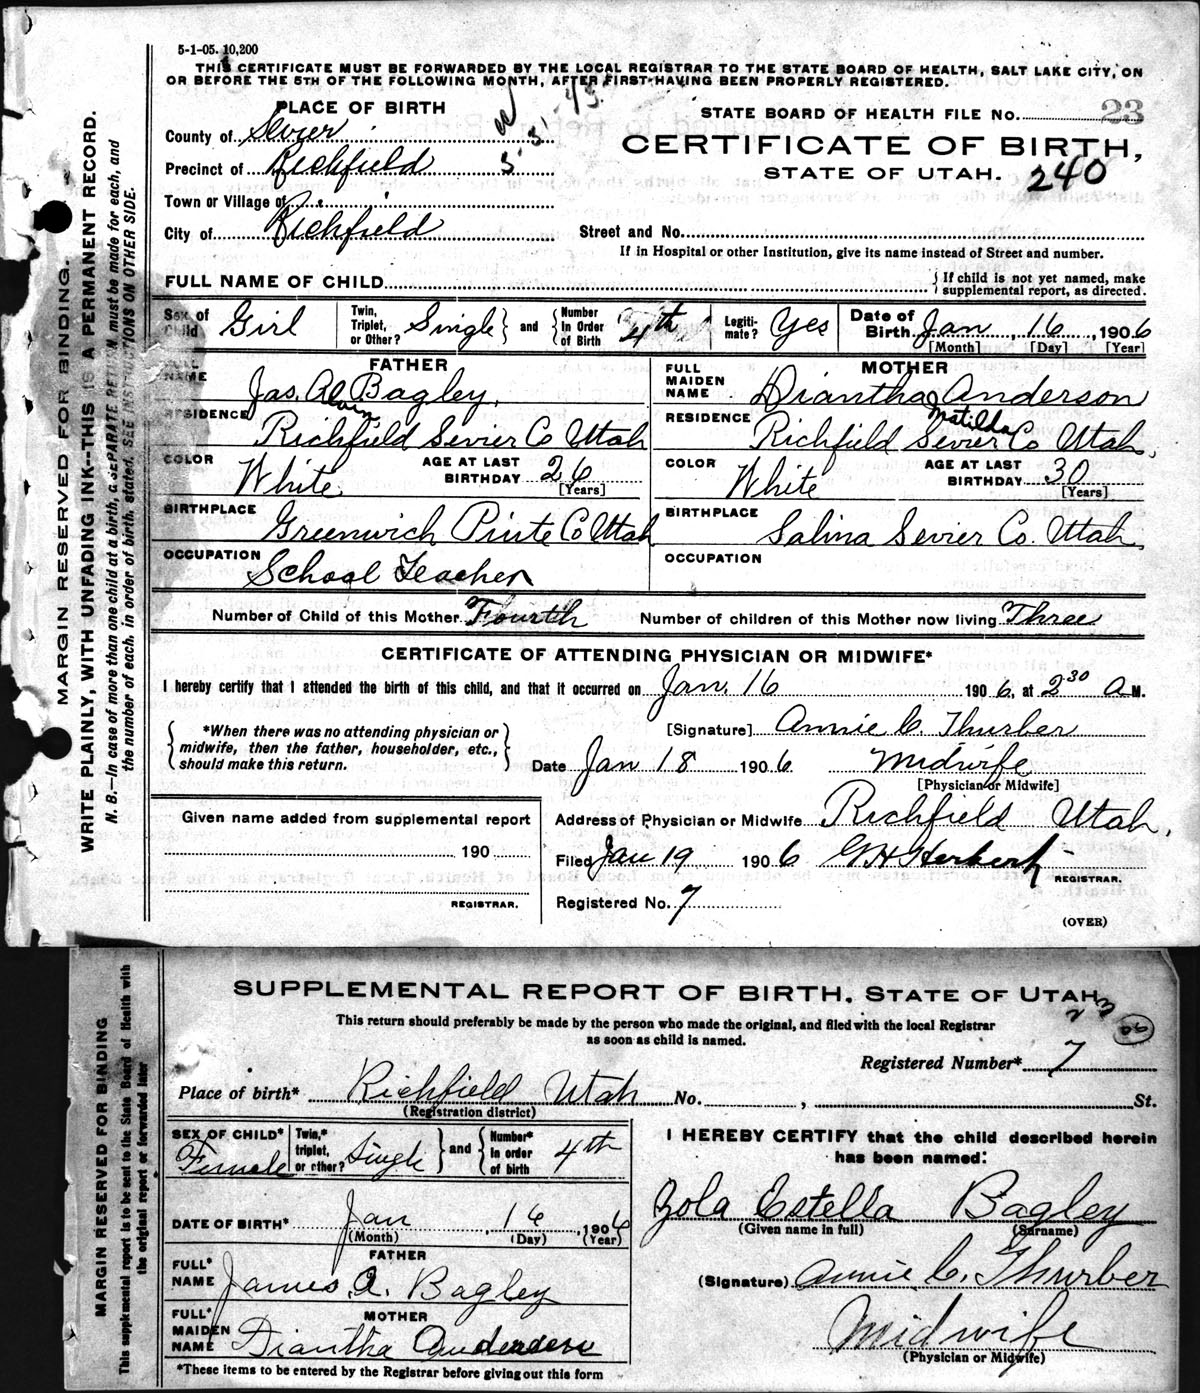 5-1-05. 10,200
THIS CERTIFICATE MUST BE FORWARDED BY THE LOCAL REGISTRAR TO THE STATE BOARD OF HEALTH, SALT LAKE CITY, ON
OR BEFORE THE 5TH OF THE FOLLOWING MONTH, AFTER FIRST HAVING BEEN PROPERLY REGISTERED.
PLACE OF BIRTH
STATE BOARD OF HEALTH FILE No. 23
County of Sevier
CERTIFICATE OF BIRTH,
Precinct of Richfield
STATE OF UTAH. 240
Town or Village of
City of Richfield
Street and No.
If in Hospital or other Institution, give its name instead of Street and number.
FULL NAME OF CHILD
{If child is not yet named, make
supplemental report, as directed.
Sex of Child Girl Twin, Triplet, or Other? Single } and { Number In Order of Birth 4th Legiti-mate? Yes Date of Birth Jan 16, 1906
[Month] [Day] [Year]
FATHER MOTHER
FULL NAME Jas. Alvin Bagley. FULL MAIDEN NAME Diantha Matilda Anderson
RESIDENCE Richfield Sevier Co Utah RESIDENCE Richfield Sevier Co Utah.
COLOR White AGE AT LAST BIRTHDAY 26 [Years] COLOR White AGE AT LAST BIRTHDAY 30 [Years]
BIRTHPLACE Greenwich Piute Co Utah BIRTHPLACE Salina Sevier Co. Utah.
OCCUPATION School Teacher OCCUPATION
Number of Child of this Mother Fourth Number of children of this Mother now living Three
CERTIFICATE OF ATTENDING PHYSICIAN OR MIDWIFE*
I hereby certify that I attended the birth of this child, and that it occurred on Jan. 16 1906, at 2 30 A M.
{*When there was no attending physician or
midwife, then the father, householder, etc.,
should make this return.}
[Signature] Annie C. Thurber
Date Jan 18 1906 Midwife
[Physician or Midwife]
Given name added from supplemental report
190
REGISTRAR.
Address of Physician or Midwife Richfield Utah.
Filed Jan 19 1906 G H Herbert
REGISTRAR.
Registered No. 7
(OVER)
MARGIN RESERVED FOR BINDING.
WRITE PLAINLY, WITH UNFADING INK--THIS IS A PERMANENT RECORD.
N. B.—In case of more than one child at a birth, a SEPARATE RETURN must be made for each, and
the number of each, in order of birth, stated. SEE INSTRUCTIONS ON OTHER SIDE.
SUPPLEMENTAL REPORT OF BIRTH, STATE OF UTAH
This return should preferably be made by the person who made the original, and filed with the local Registrar
as soon as child is named.
Registered Number* 7
Place of birth* Richfield Utah No. , St.
(Registration district)
SEX OF CHILD* Female Twin,* triplet, or other? Single } and { Number* in order of birth 4th
DATE OF BIRTH* Jan, 16, 1906
(Month) (Day) (Year)
FATHER
FULL* NAME James A. Bagley
MOTHER
FULL* MAIDEN NAME Diantha Anderson
*These items to be entered by the Registrar before giving out this form
I HEREBY CERTIFY that the child described herein
has been named:
Zola Estella Bagley
(Given name in full) (Surname)
(Signature) Annie C. Thurber
Midwife
(Physician or Midwife)
MARGIN RESERVED FOR BINDING
This supplemental report is to be sent to the State Board of Health with
the original report or forwarded later